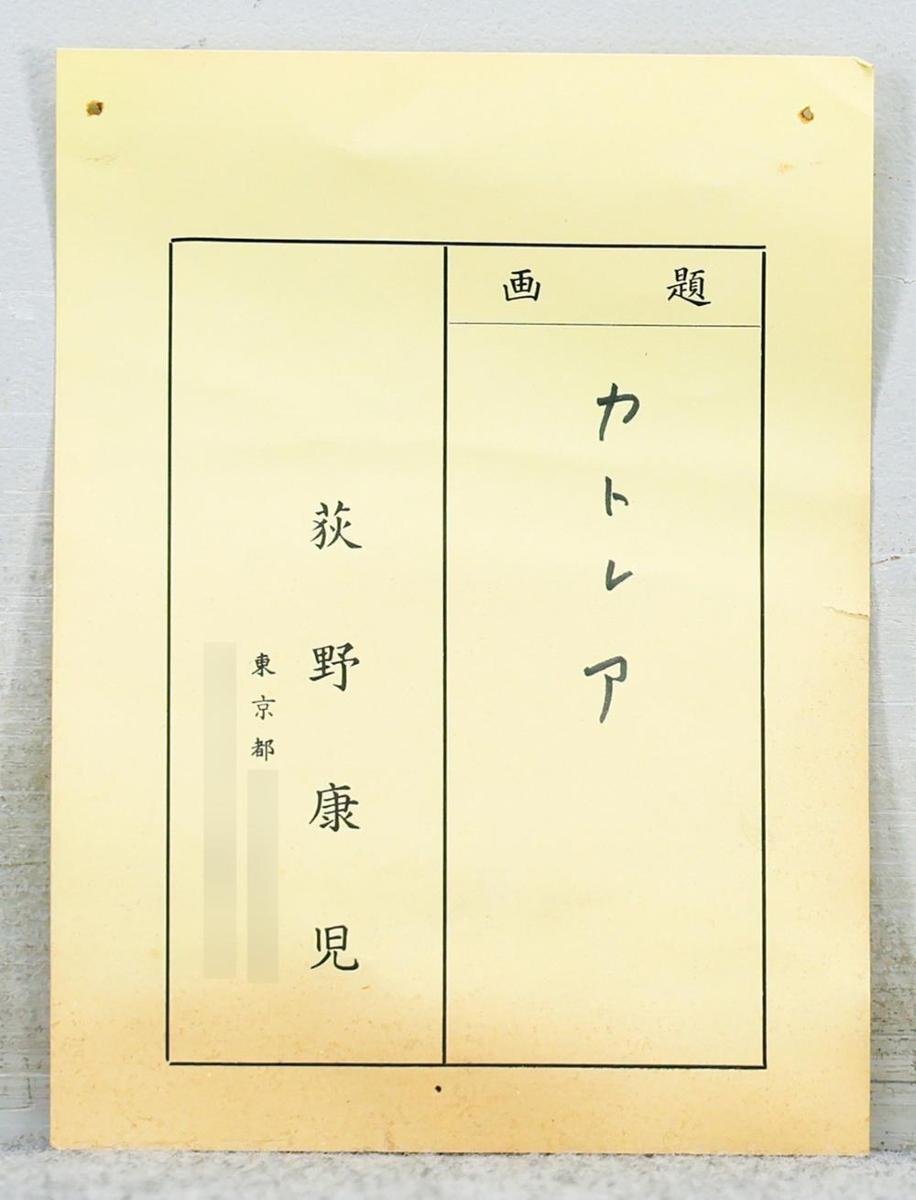 画題
カトレア
荻野康児
東京都